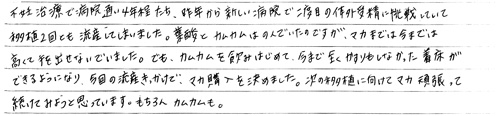 不妊治療で病院通い4年程たち、昨年から新しい病院で2度目の体外受精に挑戦していて
初移植2回とも流産してしまいました。葉酸とカムカムはのんでいたのですが、マカまでは今までは
高くて手を出せないでいました。でも、カムカムを飲みはじめて、今まで全くかすりもしなかった着床が
できるようになり、今回の流産きっかけで、マカ購入を決めました。次の移植に向けてマカ頑張って
続けてみようと思っています。もちろんカムカムも。